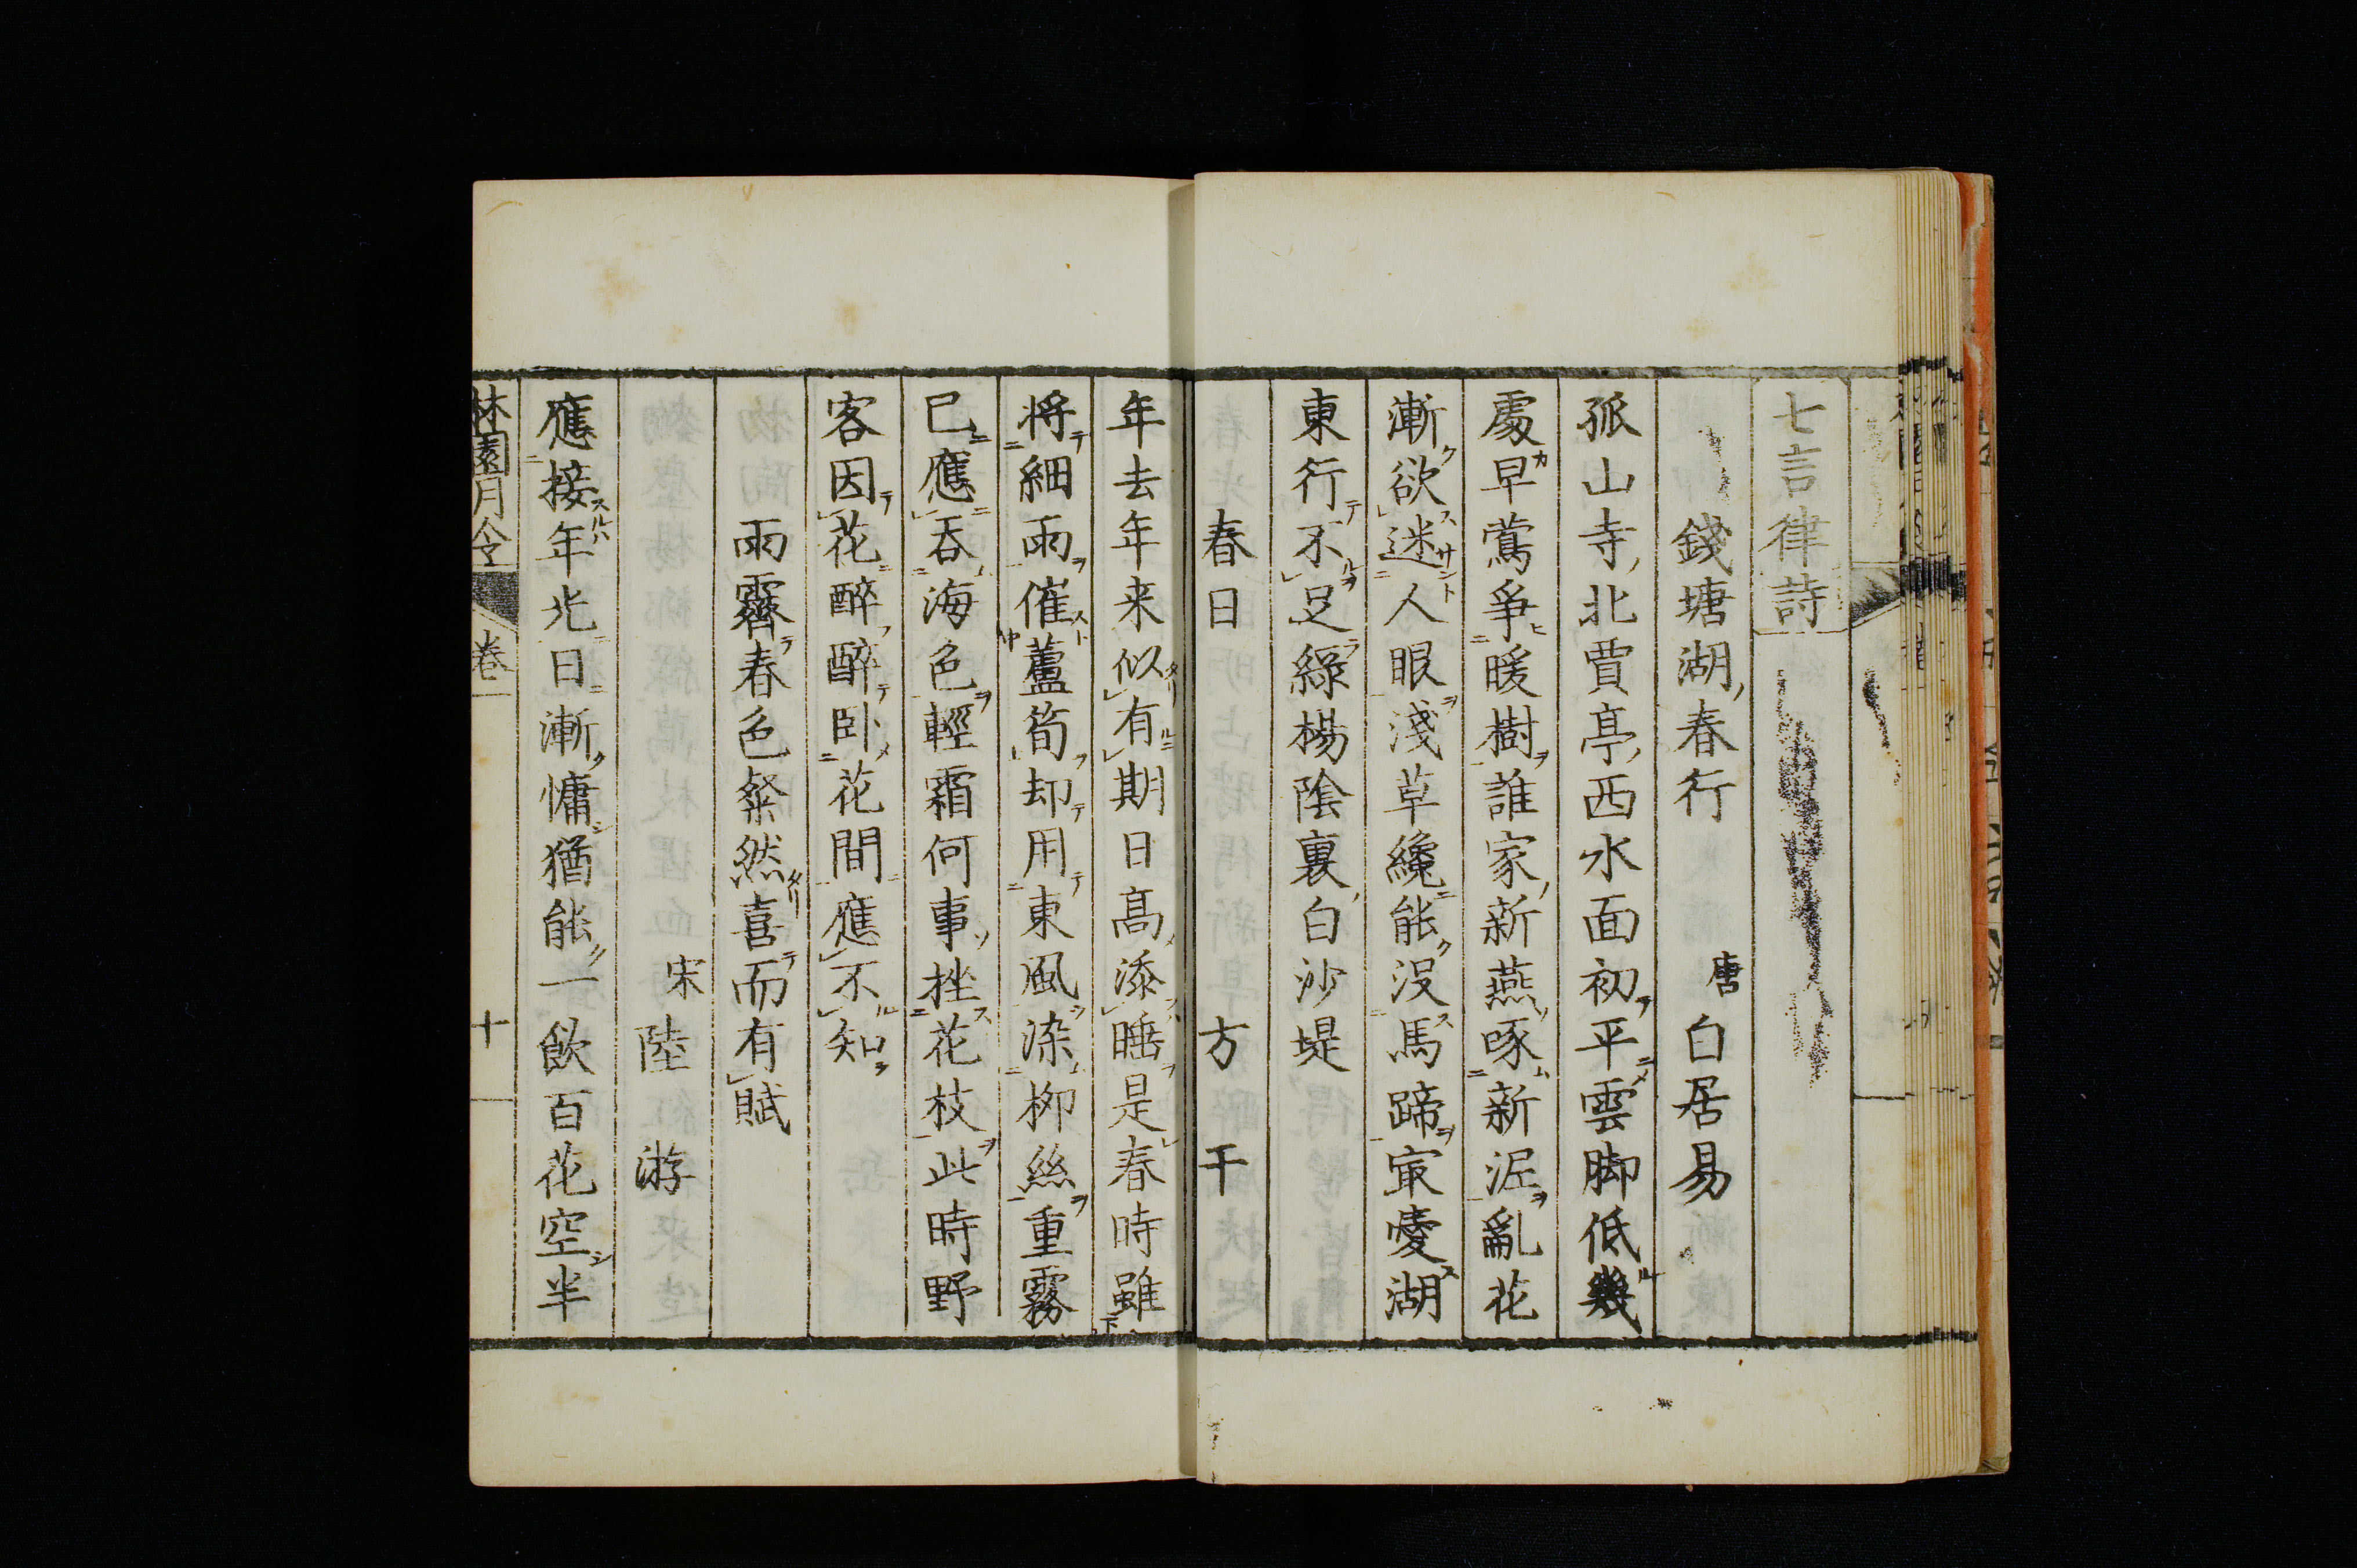 七言律詩
錢塘湖春行 唐 白居易
孤山寺北賈亭西水面初平雲脚低幾
處早鶯爭暖樹誰家新燕啄新泥亂花
漸欲迷人眼淺草纔能没馬蹄㝡愛湖
東行不足緑楊陰裏白沙堤
春日 方干
年去年来似有期日髙添睡是春時雖
将細雨催蘆筍却用東風染栁絲重霧
已應吞海色輕霜何事挫花枝此時野
客因花醉醉卧花間應不知
雨霽春色粲然喜而有賦
宋 陸游
應接年光日漸慵猶能一飲百花空半
林園月令 卷一 十